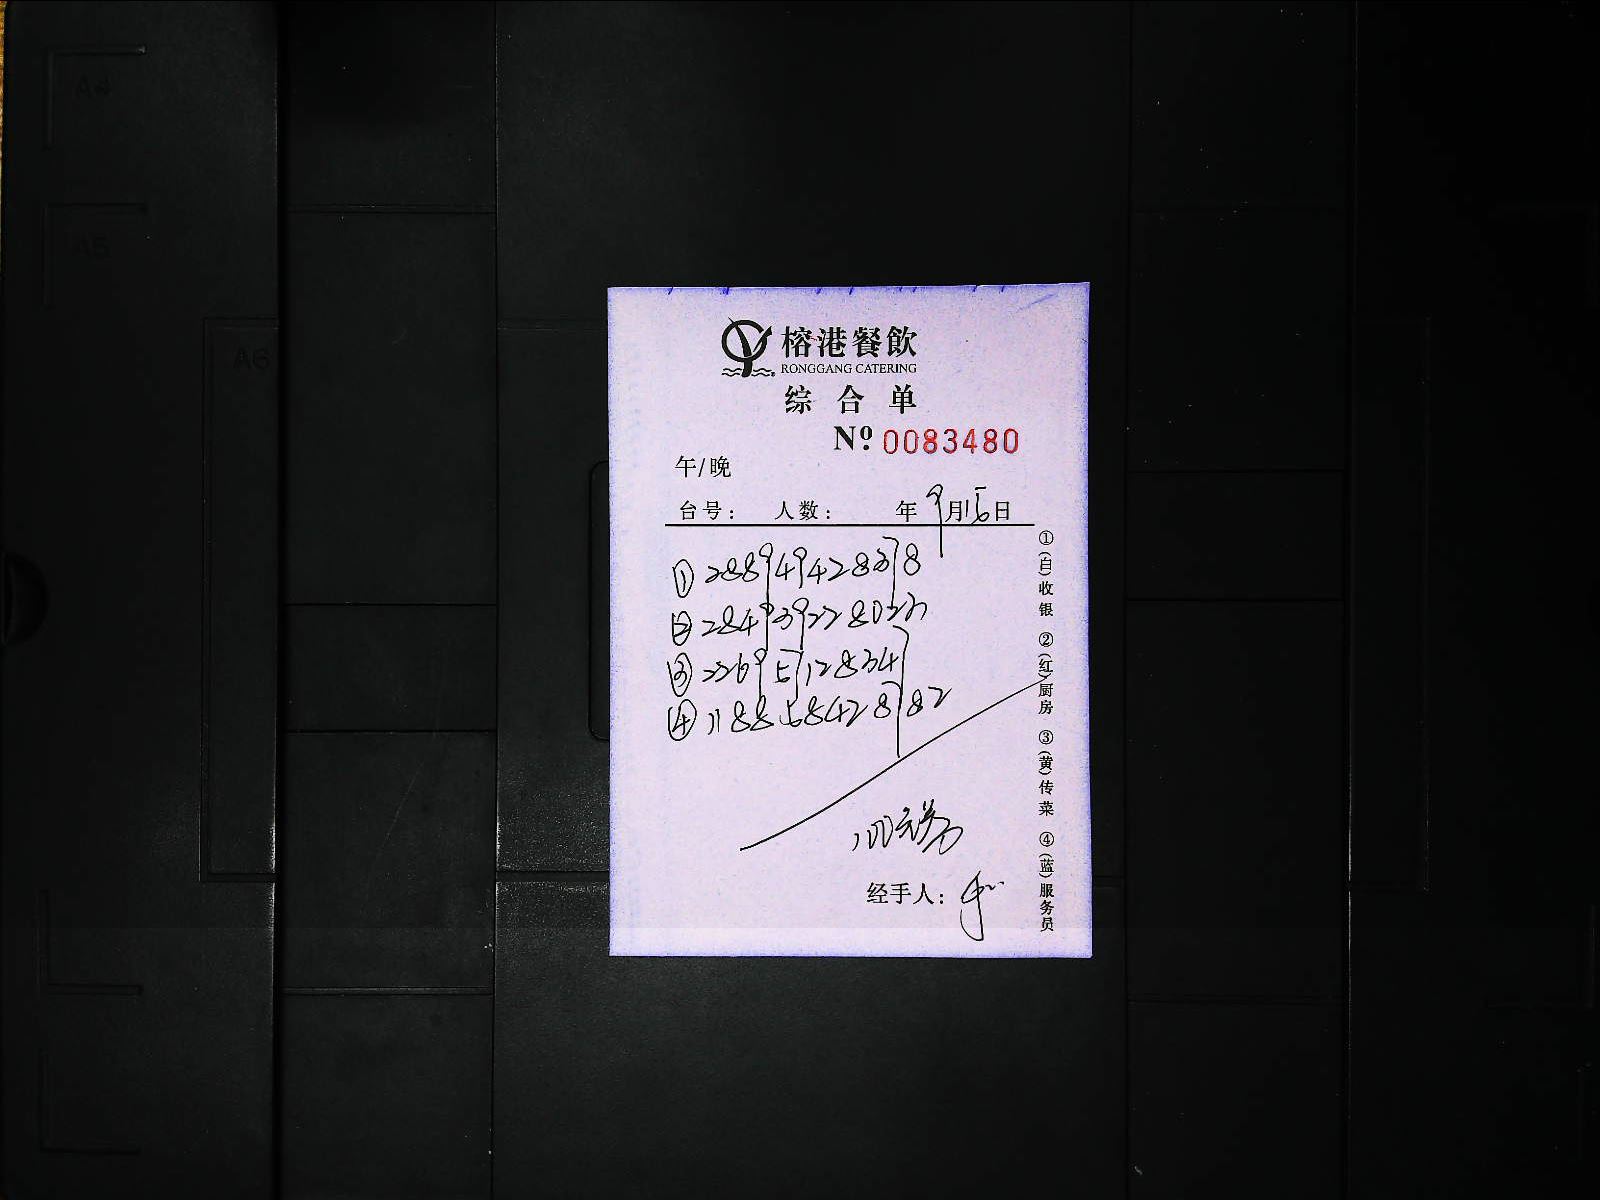 A4
A5
A6
榕港餐飲
RONGGANG CATERING
综合单
Nº 0083480
午/晚
台号: 人数: 年9月15日
① 288949428378
② 28493922802
③ 22695712834
④ 118858428782
经手人:
①(白)收银 ②(红)厨房 ③(黄)传菜 ④(蓝)服务员